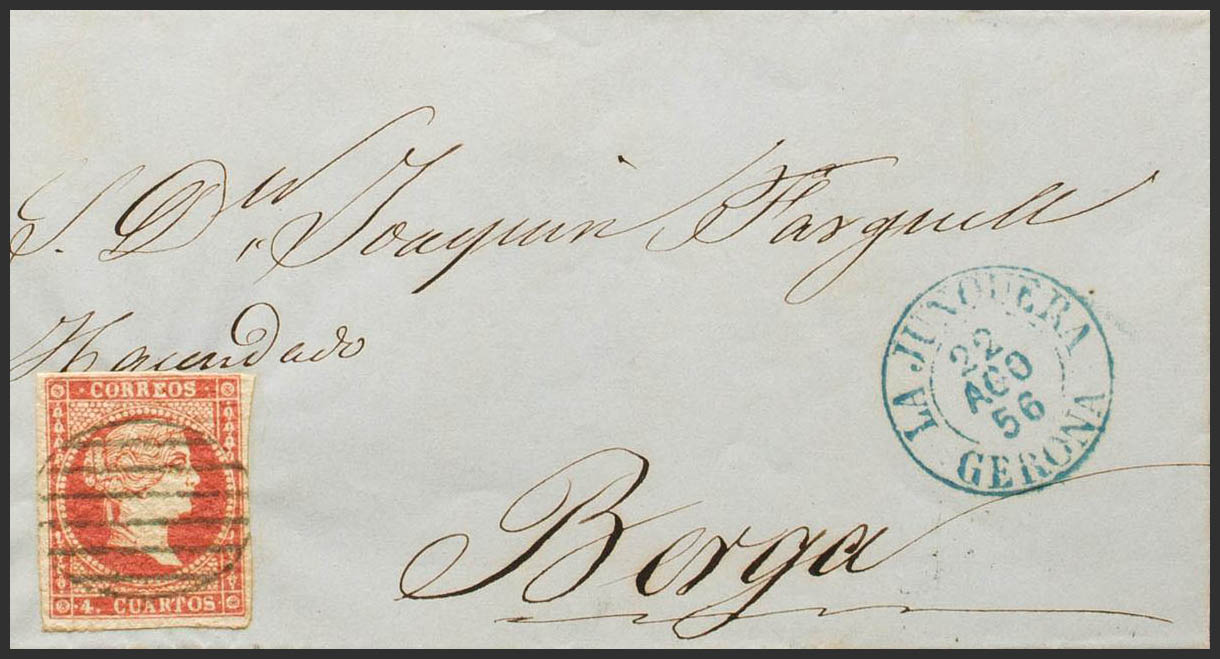 S. Dn. Joaquin Farguell
Hacendado
Berga
CORREOS
4. CUARTOS
LA JUNQUERA
22
AGO
56
GERONA